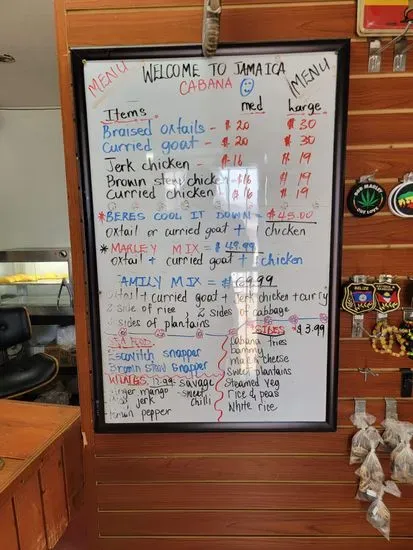 MENU
WELCOME TO JAMAICA
CABANA
MENU
Items med harge
Braised oxtails - $20 $30
Curried goat - $20 $30
Jerk chicken - $16 $19
Brown stew chicken - $16 $19
Curried chicken $16 $19
*BERES COOL IT DOWN - $45.00
oxtail or curried goat + chicken
*MARLEY MIX = $49.99
oxtail + curried goat + chicken
AMILY MIX = $69.99
oxtail + curried goat + Jerk chicken + curry
2 side of rice, 2 sides of cabbage
sides of plantains
SIDES - $3.99
Escovitch snapper
Brown stew snapper
WINGS 13.99 savage
ginger mango - sweet
jerk chilli
lemon pepper
Cabana fries
bammy
mac & cheese
Sweet plantains
Steamed veg
Rice & peas
White rice
BOB MARLEY
ONE LOVE
BELIZE